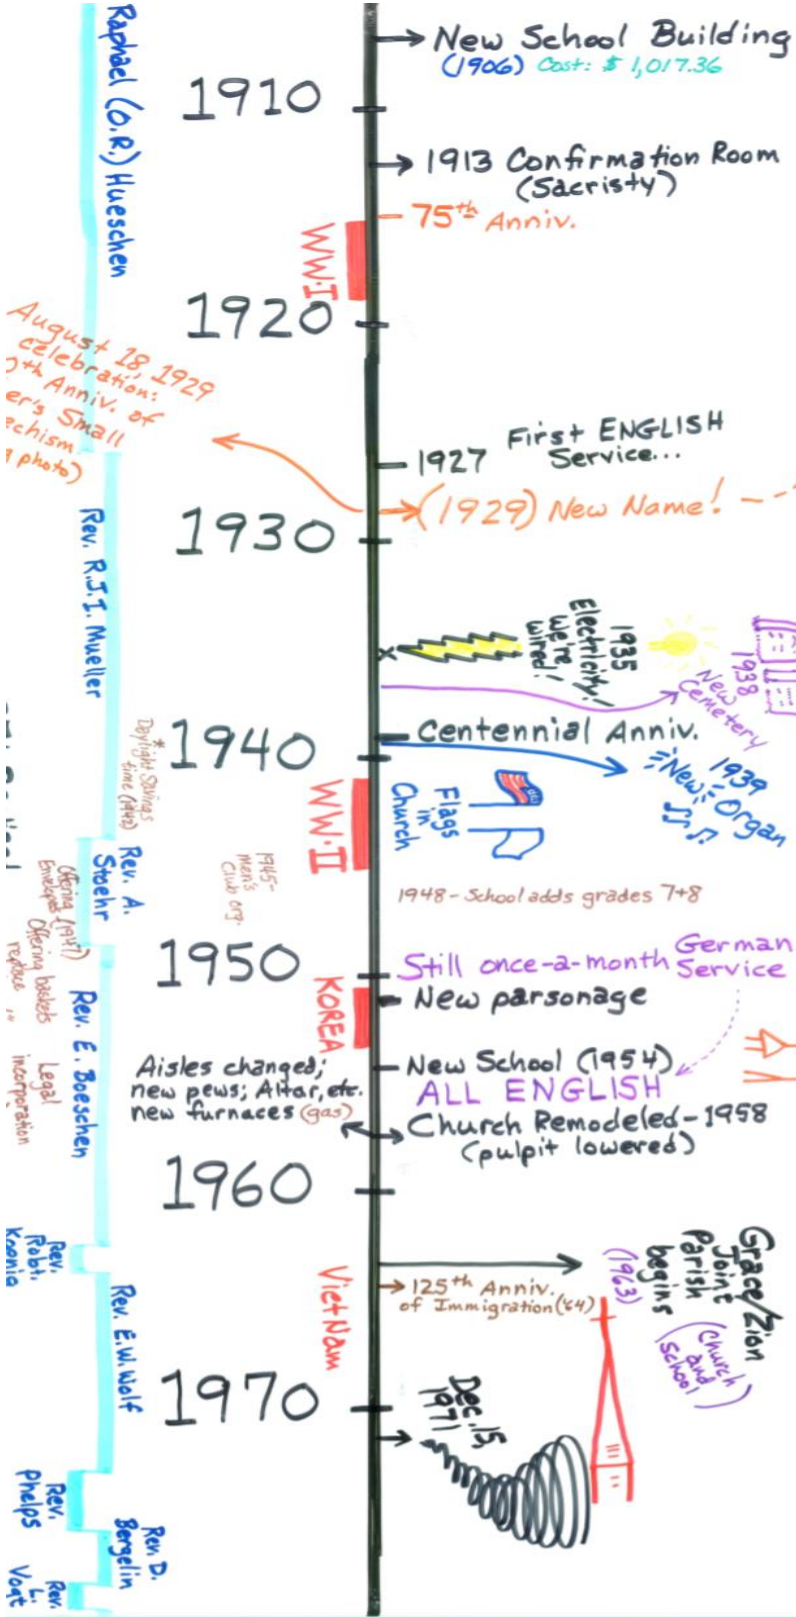 New School Building
(1906) Cost: $1,017.36
Raphael (O.R.) Hueschen
1910
1913 Confirmation Room
(Sacristy)
75th Anniv.
WW·I
1920
August 18, 1929
celebration:
th Anniv. of
er's Small
echism
photo)
First ENGLISH
1927 Service...
(1929) New Name!
1930
Rev. R.J.I. Mueller
1935
Electricity!
We're
wired!
1938
New
Cemetery
Centennial Anniv.
1940
*
Daylight Savings
time (1942)
1939
New
Organ
WW·II
Flags
in
Church
Rev. A.
Stoehr
1945-
men's
Club org.
1948 - School adds grades 7+8
Offering
Envelopes (1947)
Offering baskets
replace "
1950
Still once-a-month German
Service
New parsonage
KOREA
Rev. E. Boeschen
Legal
incorporation
Aisles changed;
new pews; Altar, etc.
new furnaces (gas)
New School (1954)
ALL ENGLISH
Church Remodeled - 1958
(pulpit lowered)
1960
Rev.
Robt.
Koenig
Grace/Zion
Joint
Parish
begins
(1963)
(church
and
school)
125th Anniv.
of Immigration ('64)
VietNam
Rev. E.W. Wolf
1970
Dec. 15,
1971
Rev.
Phelps
Rev. D.
Bergelin
Rev.
L.
Vogt